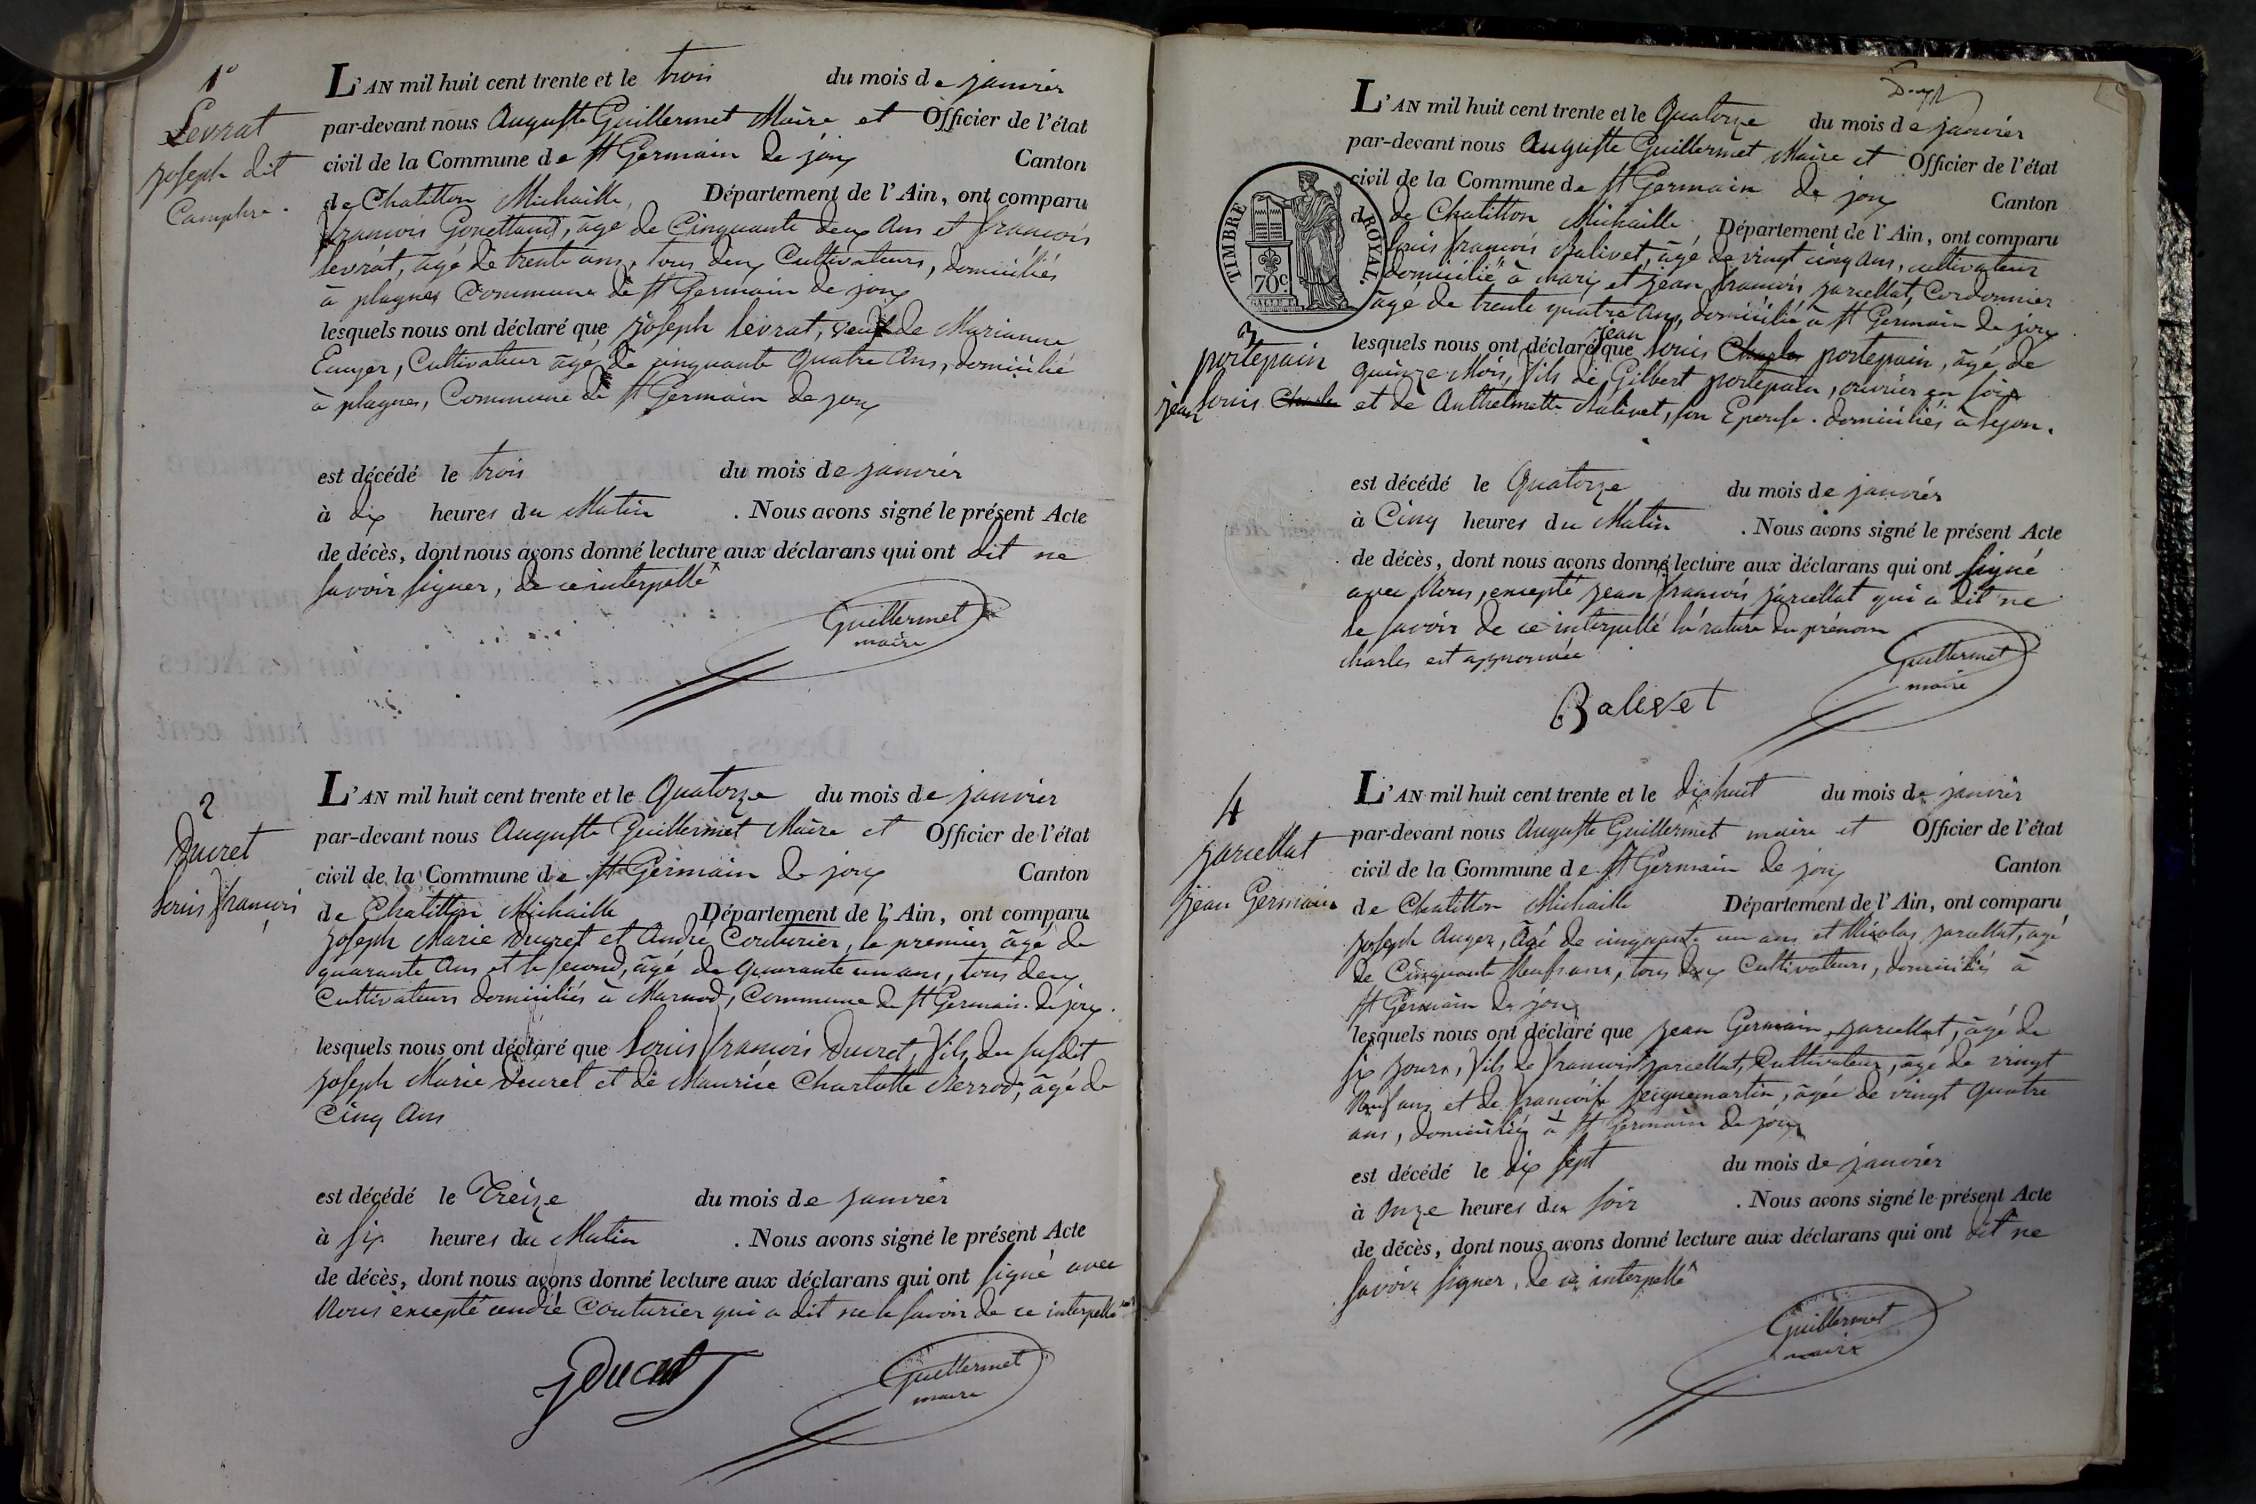 1°
Levrat
joseph dit
Camphre.
L'AN mil huit cent trente et le trois du mois de janvier
par-devant nous Auguste Guillermet Maire et Officier de l'état
civil de la Commune de St Germain de joux Canton
de Chatillon Michaille, Département de l'Ain, ont comparu
françois, âgé de Cinquante deux Ans et françois
levrat, âgé de trente ans, tous deux Cultivateurs, domiciliés
à plagnes Commune de St Germain de joux
lesquels nous ont déclaré que joseph levrat, veuf de Marianne
Cultivateur âgé de cinquante Quatre Ans, domicilié
à plagnes, Commune de St Germain de joux
est décédé le trois du mois de janvier
à dix heures du Matin . Nous avons signé le présent Acte
de décès, dont nous avons donné lecture aux déclarans qui ont dit ne
savoir signer, de ce interpellé
Guillermet
maire
2
Ducret
Louis françois
L'AN mil huit cent trente et le Quatorze du mois de janvier
par-devant nous Auguste Guillermet Maire et Officier de l'état
civil de la Commune de St Germain de joux Canton
de Chatillon Michaille Département de l'Ain, ont comparu
joseph Marie Ducret et André Couturier, le premier âgé de
quarante Ans et le second, âgé de Quarante un ans, tous deux
Cultivateurs domiciliés à Marnod, Commune de St Germain de joux.
lesquels nous ont déclaré que Louis françois Ducret, fils du susdit
joseph Marie Ducret et de Maurice Charlotte Berrod, âgé de
Cinq Ans
est décédé le Treize du mois de janvier
à six heures du Matin . Nous avons signé le présent Acte
de décès, dont nous avons donné lecture aux déclarans qui ont signé avec
Nous excepté andré Couturier qui a dit ne le savoir de ce interpellé
J Ducret
Guillermet
maire
L'AN mil huit cent trente et le Quatorze du mois de janvier
par-devant nous Auguste Guillermet Maire et Officier de l'état
civil de la Commune de St Germain de joux Canton
de de Chatillon Michaille, Département de l'Ain, ont comparu
louis françois Balivet, âgé de vingt cinq Ans, cultivateur
domicilié à charix et jean françois jarcellat, Cordonnier
âgé de trente quatre Ans, domicilié à St Germain de joux
TIMBRE ROYAL.
70 c.
3
portepain
jean Louis Charles
lesquels nous ont déclaré que jean Louis Charles portepain, âgé de
quinze Mois, fils de Gilbert portepain, ouvrier en soie
et de Anthelmette Balivet, son Epouse. domiciliés à Lyon.
est décédé le Quatorze du mois de janvier
à Cinq heures du Matin . Nous avons signé le présent Acte
de décès, dont nous avons donné lecture aux déclarans qui ont signé
avec Nous, excepté jean françois jarcellat qui a dit ne
le savoir de ce interpellé la rature du prénom
charles est approuvée
Guillermet
maire
Balivet
4
jarcellat
jean Germain
L'AN mil huit cent trente et le dix huit du mois de janvier
par-devant nous Auguste Guillermet maire et Officier de l'état
civil de la Commune de St Germain de joux Canton
de Chatillon Michaille Département de l'Ain, ont comparu
joseph Auger, âgé de cinquante un ans et Nicolas jarcellat, âgé
de Cinquante Neuf ans, tous deux Cultivateurs, domiciliés à
St Germain de joux
lesquels nous ont déclaré que jean Germain jarcellat, âgé de
six jours, fils de françois jarcellat, Cultivateur, âgé de vingt
Neuf ans et de françoise seignemartin, âgée de vingt quatre
ans, domiciliés à St Germain de joux
est décédé le dix sept du mois de janvier
à Onze heures du soir . Nous avons signé le présent Acte
de décès, dont nous avons donné lecture aux déclarans qui ont dit ne
savoir signer, de ce interpellé
Guillermet
maire